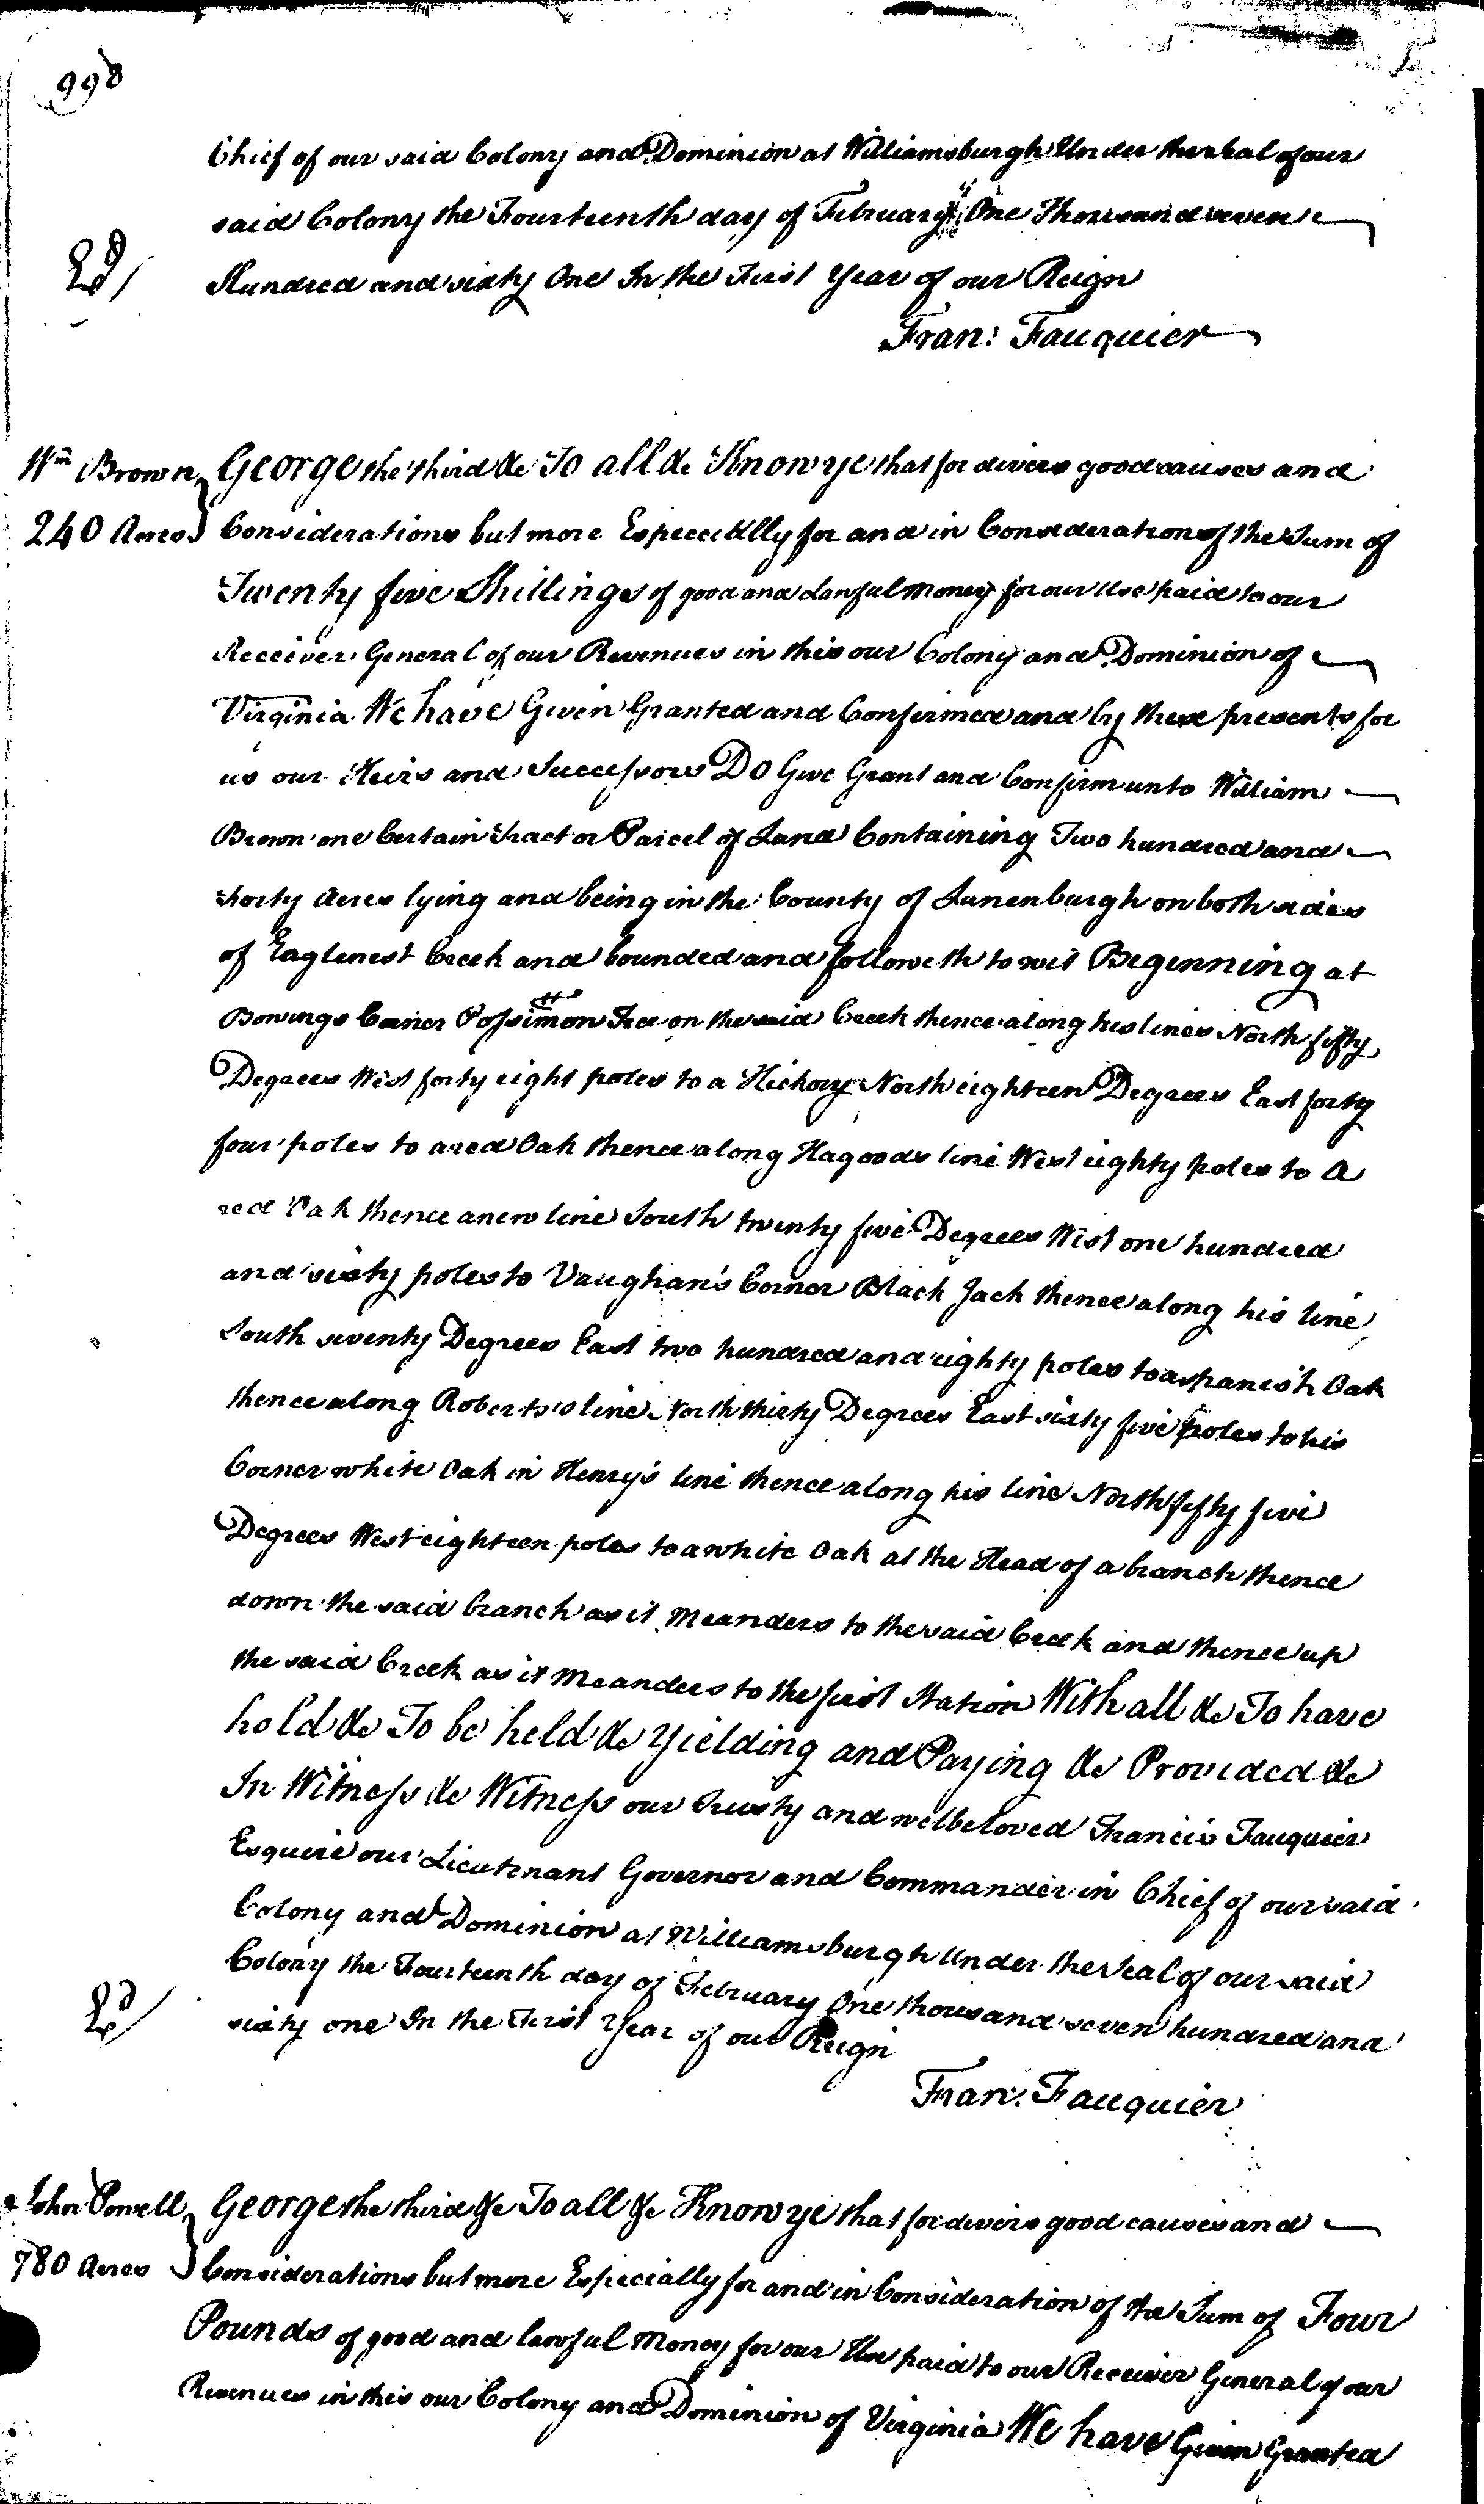 998
Chief of our said Colony and Dominion at Williamsburgh Under the seal of our
said Colony the Fourteenth day of February One Thousand seven
Hundred and sixty One In the First Year of our Reign
Fran: Fauquier
Wm Brown
240 Acres
George the third &c To all &c Know ye that for divers good causes and
Considerations but more Especially for and in Consideration of the Sum of
Twenty five Shillings of good and Lawful Money for our Use paid to our
Receiver General of our Revenues in this our Colony and Dominion of
Virginia We have Given Granted and Confirmed and by these presents for
us our Heirs and Successors Do Give Grant and Confirm unto William
Brown one Certain Tract or Parcel of Land Containing Two hundred and
Forty Acres lying and being in the County of Lunenburgh on both sides
of Eaglenest Creek and bounded and followeth to wit Beginning at
Bowings Corner Possimon Tree on the said Creek thence along his lines North fifty
Degrees West forty eight poles to a Hickory North eighteen Degrees East forty
four poles to a red Oak thence along Hagoods line West eighty poles to a
red Oak thence a new line South twenty five Degrees West one hundred
and sixty poles to Vaughan's Corner Black Jack thence along his line
South seventy Degrees East two hundred and eighty poles to a spanish Oak
thence along Roberts's line North thirty Degrees East sixty five poles to his
Corner white Oak in Henry's line thence along his line North fifty five
Degrees West eighteen poles to a white Oak at the Head of a branch thence
down the said branch as it Meanders to the said Creek and thence up
the said Creek as it Meanders to the first Station With all &c To have
hold &c To be held &c Yielding and Paying &c Provided &c
In Witness &c Witness our trusty and welbeloved Francis Fauquier
Esquire our Lieutenant Governor and Commander in Chief of our said
Colony and Dominion at Williamsburgh Under the Seal of our said
Colony the Fourteenth day of February One thousand seven hundred and
sixty one In the First Year of our Reign
Fran: Fauquier
John Powell
780 Acres
George the third &c To all &c Know ye that for divers good causes and
Considerations but more Especially for and in Consideration of the Sum of Four
Pounds of good and lawful Money for our Use paid to our Receiver General of our
Revenues in this our Colony and Dominion of Virginia We have Given Granted